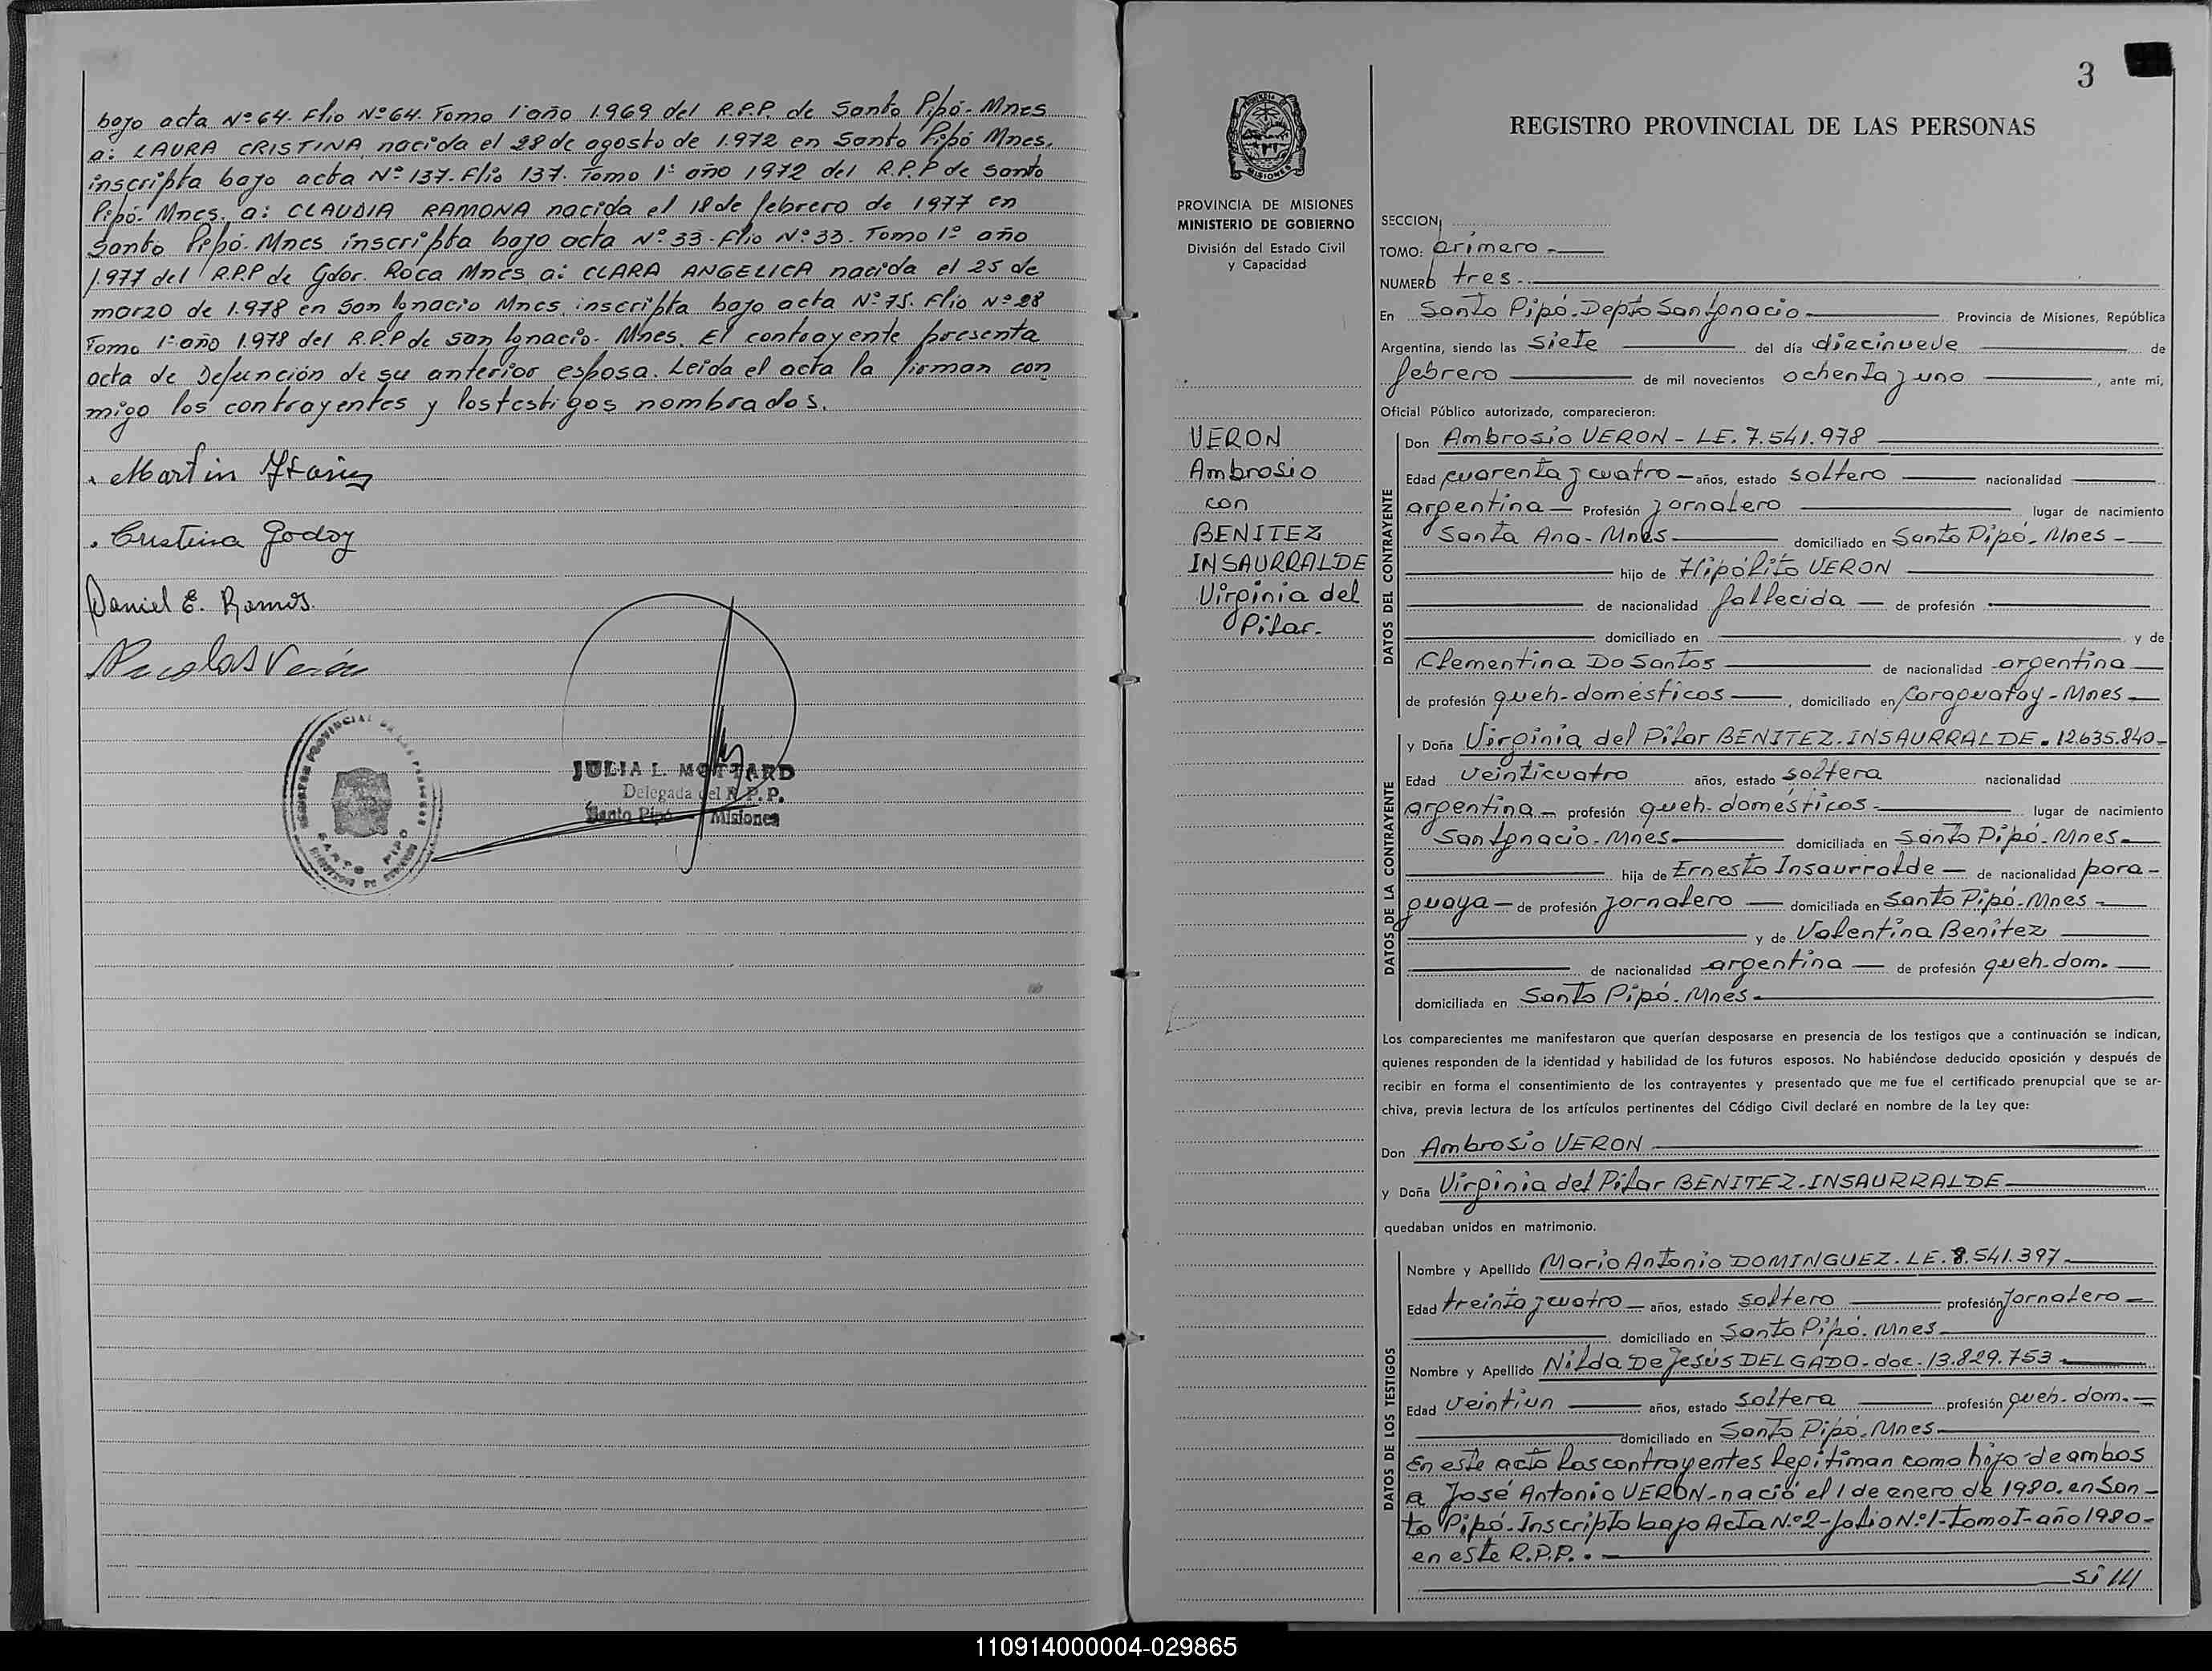 bajo acta Nº 64. Flio Nº 64. Tomo 1º año 1.969 del R.P.P. de Santo Pipó - Mnes
a: LAURA CRISTINA nacida el 28 de agosto de 1.972 en Santo Pipó Mnes.
inscripta bajo acta Nº 137. Flio 137. Tomo 1º año 1972 del R.P.P de Santo
Pipó. Mnes. a: CLAUDIA RAMONA nacida el 18 de febrero de 1977 en
Santo Pipó. Mnes inscripta bajo acta Nº 33. Flio Nº 33. Tomo 1º año
1.977 del R.P.P de Gdor. Roca Mnes a: CLARA ANGELICA nacida el 25 de
marzo de 1.978 en San Ignacio Mnes. inscripta bajo acta Nº 75. Flio Nº 28
Tomo 1º año 1.978 del R.P.P de San Ignacio. Mnes. El contrayente presenta
acta de Defunción de su anterior esposa. Leida el acta la firman con
migo los contrayentes y los testigos nombrados.
Martin
Cristina Godoy
Daniel E. Ramos.
Nicolas Verón
JULIA L. MOTTARD
Delegada del R.P.P.
Santo Pipó - Misiones
3
REGISTRO PROVINCIAL DE LAS PERSONAS
PROVINCIA DE MISIONES
MINISTERIO DE GOBIERNO
División del Estado Civil
y Capacidad
VERON
Ambrosio
con
BENITEZ
INSAURRALDE
Virginia del
Pilar.
SECCION
TOMO: primero -
NUMERO tres -
En Santo Pipó. Depto San Ignacio Provincia de Misiones, República
Argentina, siendo las siete del día diecinueve de
febrero de mil novecientos ochenta y uno, ante mi,
Oficial Público autorizado, comparecieron:
DATOS DEL CONTRAYENTE
Don Ambrosio VERON - LE. 7.541.978
Edad cuarenta y cuatro - años, estado soltero nacionalidad
argentina - Profesión jornalero lugar de nacimiento
Santa Ana - Mnes domiciliado en Santo Pipó - Mnes -
hijo de Hipólito VERON
de nacionalidad fallecida - de profesión
domiciliado en y de
Clementina Do Santos de nacionalidad argentina
de profesión queh-domésticos, domiciliado en Caraguatay - Mnes
DATOS DE LA CONTRAYENTE
y Doña Virginia del Pilar BENITEZ-INSAURRALDE. 12.635.840-
Edad veinticuatro años, estado soltera nacionalidad
argentina - profesión queh. domésticos. lugar de nacimiento
San Ignacio. Mnes domiciliada en Santo Pipó. Mnes.
hija de Ernesto Insaurralde - de nacionalidad para-
guaya - de profesión jornalero domiciliada en Santo Pipó. Mnes -
y de Valentina Benitez
de nacionalidad argentina - de profesión queh-dom.
domiciliada en Santo Pipó. Mnes.
Los comparecientes me manifestaron que querían desposarse en presencia de los testigos que a continuación se indican,
quienes responden de la identidad y habilidad de los futuros esposos. No habiéndose deducido oposición y después de
recibir en forma el consentimiento de los contrayentes y presentado que me fue el certificado prenupcial que se ar-
chiva, previa lectura de los artículos pertinentes del Código Civil declaré en nombre de la Ley que:
Don Ambrosio VERON
y Doña Virginia del Pilar BENITEZ-INSAURRALDE
quedaban unidos en matrimonio.
DATOS DE LOS TESTIGOS
Nombre y Apellido Mario Antonio DOMINGUEZ. LE. 8.541.397
Edad treinta y cuatro - años, estado soltero profesión jornalero -
domiciliado en Santo Pipó. Mnes
Nombre y Apellido Nilda De Jesús DELGADO. doc. 13.829.753
Edad veintiun años, estado soltera profesión queh. dom. -
domiciliado en Santo Pipó. Mnes
En este acto los contrayentes legitiman como hijo de ambos
a José Antonio VERON - nació el 1 de enero de 1980. en San-
to Pipó. Inscripto bajo Acta N.º 2 - folio N.º 1 - Tomo I - año 1980 -
en este R.P.P.
110914000004-029865